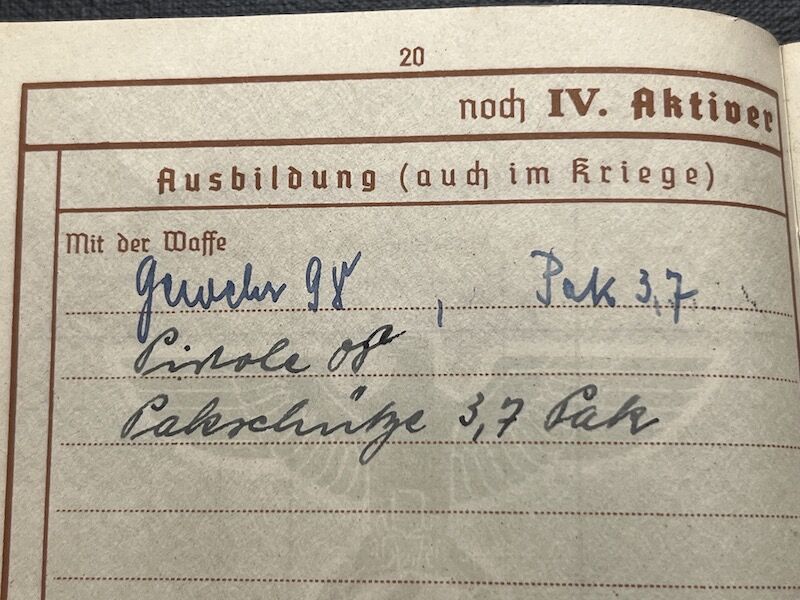 20
noch IV. Aktiver
Ausbildung (auch im Kriege)
Mit der Waffe
Gewehr 98, Pak 3,7
Pistole 08
Pakschütze 3,7 Pak